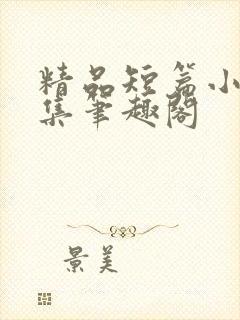 精品短篇小
集笔趣阁
景美